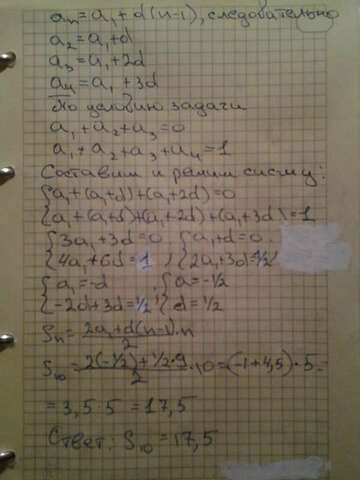 aₙ = a₁ + d(n-1), следовательно
a₂ = a₁ + d
a₃ = a₁ + 2d
a₄ = a₁ + 3d
По условию задачи
a₁ + a₂ + a₃ = 0
a₁ + a₂ + a₃ + a₄ = 1
Составим и решим систему:
{a₁ + (a₁+d) + (a₁+2d) = 0
{a₁ + (a₁+d) + (a₁+2d) + (a₁+3d) = 1
{3a₁ + 3d = 0 {a₁ + d = 0
{4a₁ + 6d = 1, {2a₁ + 3d = 1/2
{a₁ = -d {a = -1/2
{-2d + 3d = 1/2, {d = 1/2
Sₙ = (2a₁ + d(n-1))/2 · n
S₁₀ = (2(-1/2) + 1/2 · 9)/2 · 10 = (-1 + 4,5) · 5 =
= 3,5 · 5 = 17,5
Ответ: S₁₀ = 17,5